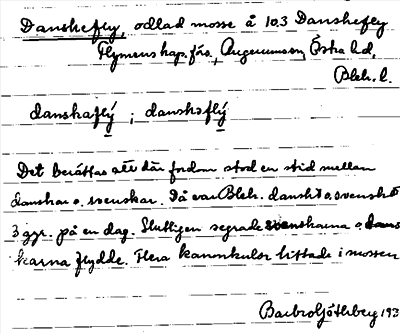 Danskefly, odlad mosse å 10.3 Danskefly
Flymens hap. förs., Augerumssn, Östra hd,
Blek. l.
danskaflý ; danskəflý
Det berättas att där fordom stod en strid mellan
danskar o. svenskar. Då var Blek. danskt o. svenskt
3 ggr. på en dag. Slutligen segrade svenskarna o. dans
karna flydde. Flera kanonkulor hittade i mossen
Barbro Götlberg 193